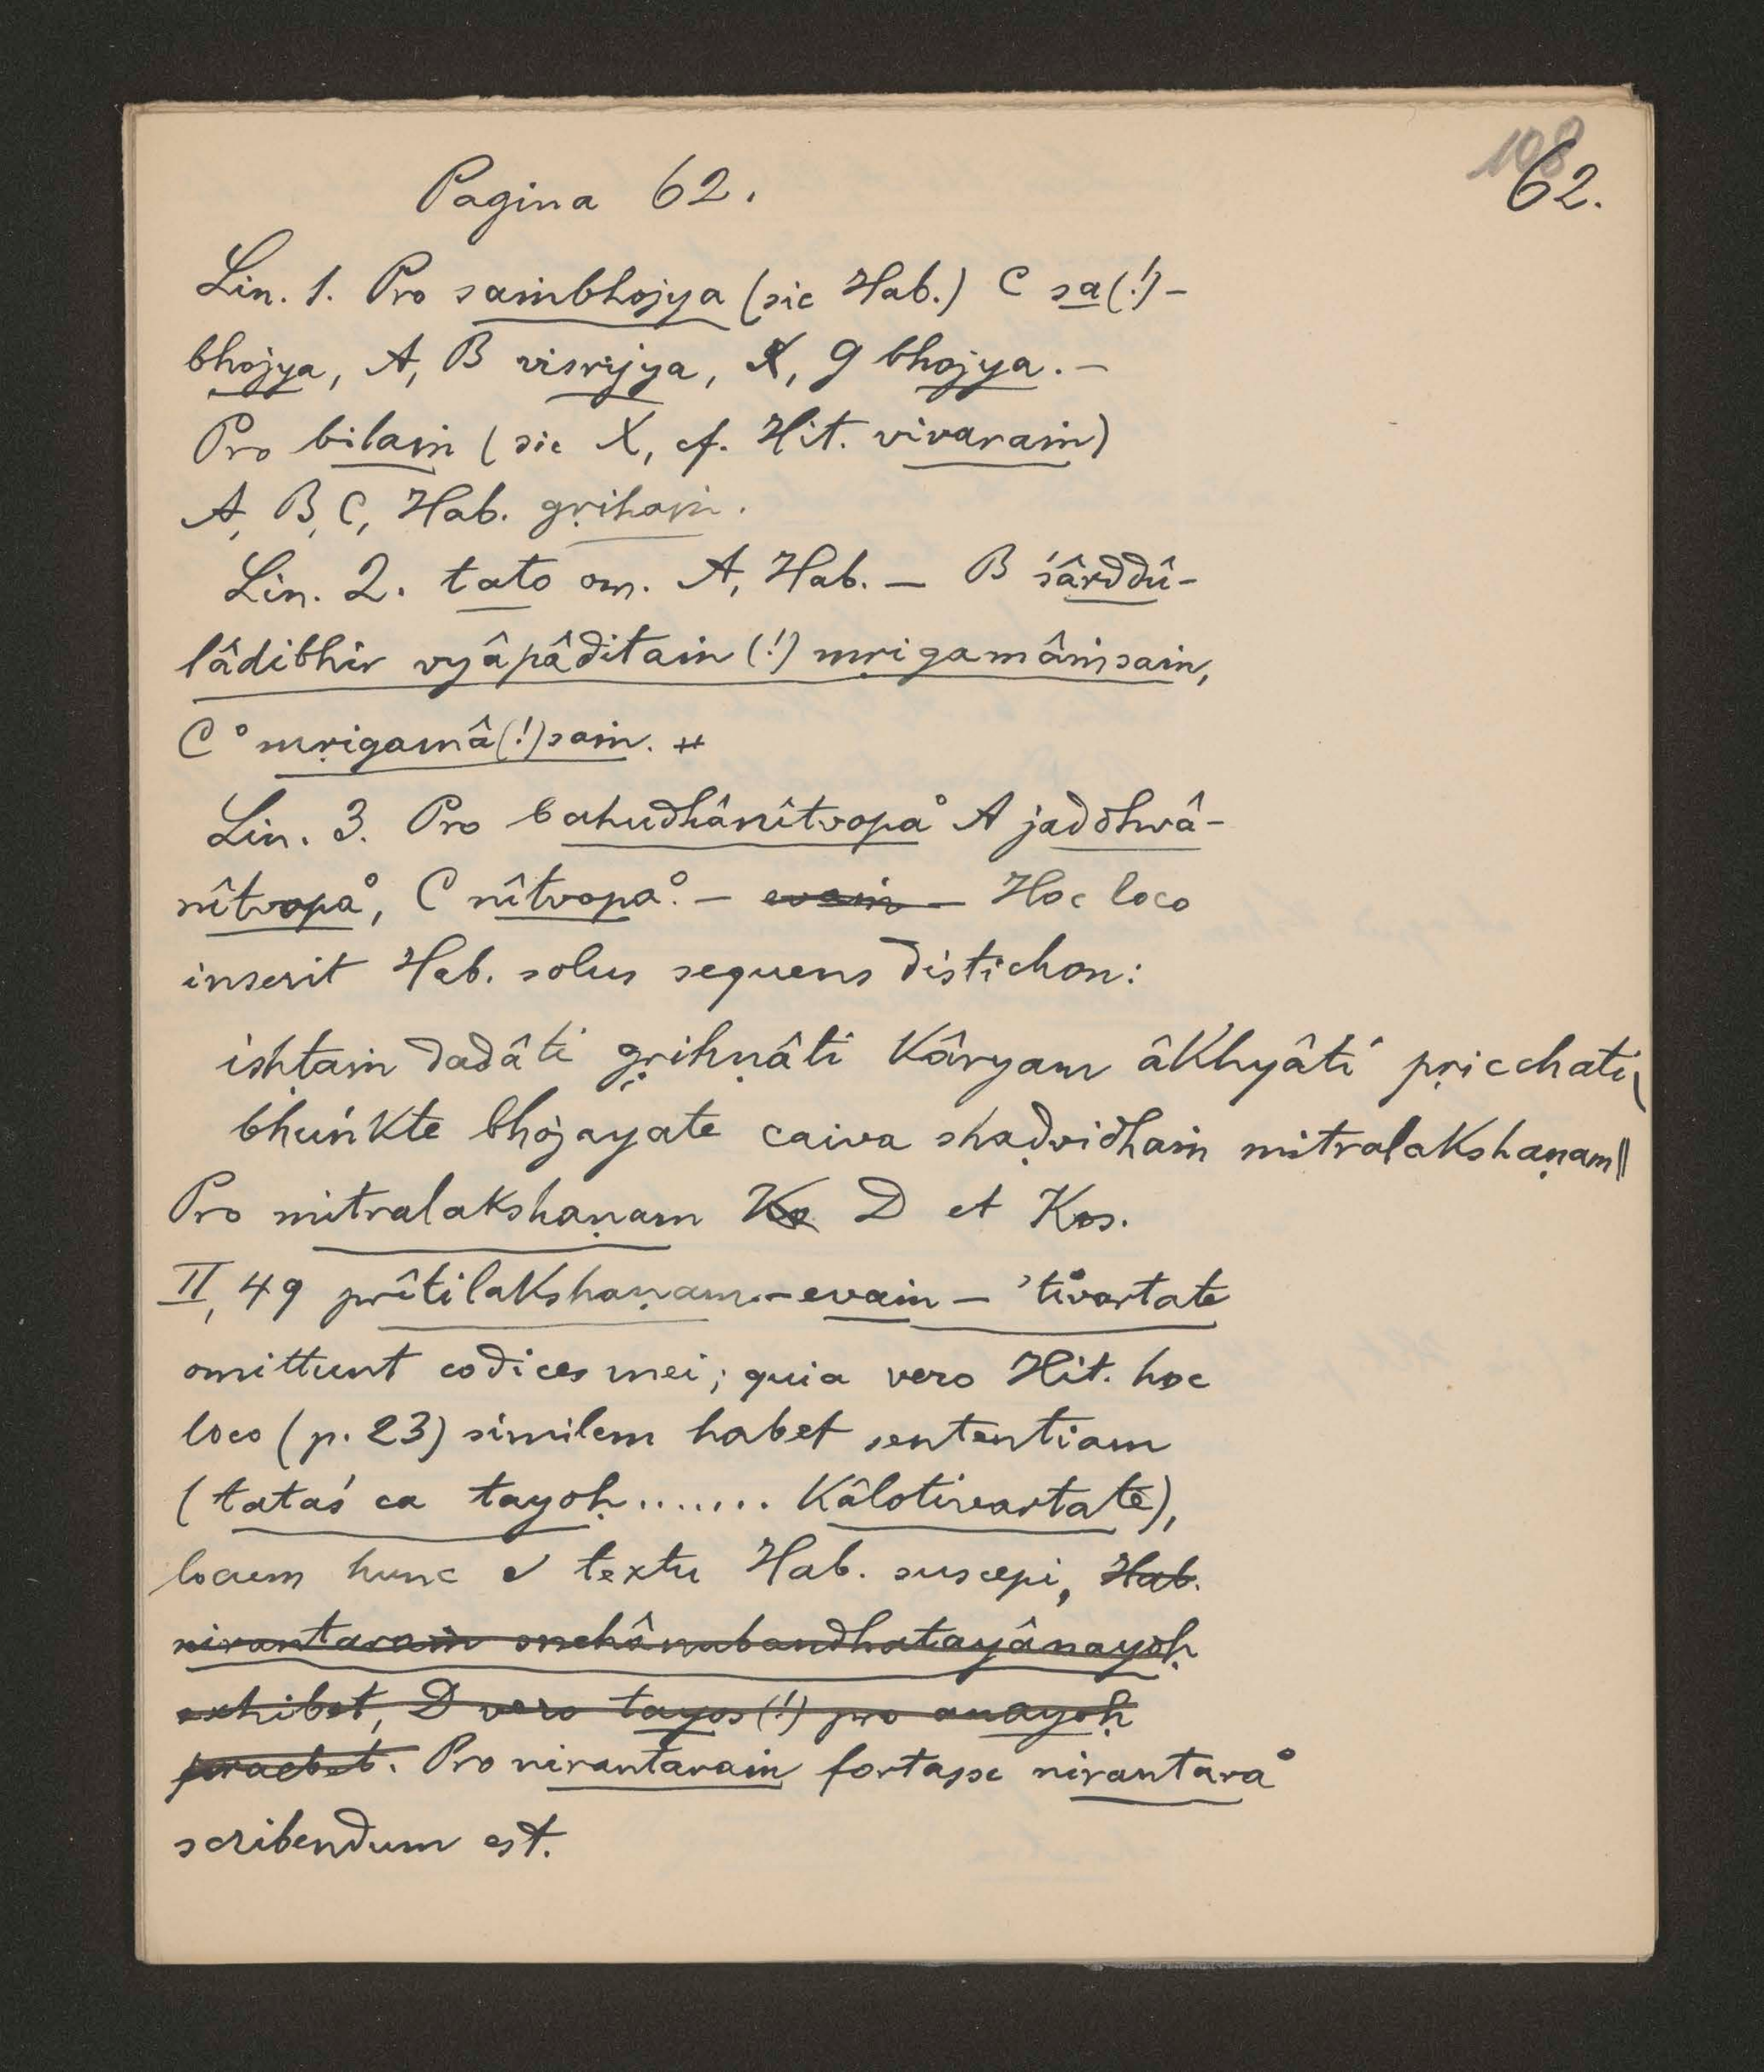 108
62.
Pagina 62.
Lin. 1. Pro saṁbhojya (sic Hab.) C sa(!)-
bhojya, A, B visṛijya, X, G bhojya. –
Pro bilaṁ (sic X, cf. Hit. vivaraṁ)
A, B, C, Hab. gṛihaṁ.
Lin. 2. tato om. A, Hab. – B śârddû-
lâdibhir vyâpâditaṁ (!) mṛigamâṁsaṁ,
C ° mṛigamâ(!)saṁ.
Lin. 3. Pro bahudhânîtvopa° A jaddhwâ-
nîtvopa°, C nîtvopa°. – evaṁ – Hoc loco
inserit Hab. solus sequens distichon:
ishṭaṁ dadâti gṛihṇâti kâryam âkhyâti pṛicchati|
bhuṅkte bhojayate caiva shaḍvidhaṁ mitralakshaṇam||
Pro mitralakshaṇam Ko D et Kos.
II, 49 prîtilakshaṇam. – evaṁ – 'tivartate
omittunt codices mei; quia vero Hit. hoc
loco (p. 23) similem habet sententiam
(tataś ca tayoḥ ....... kâlotivartate),
locum hunc e textu Hab. suscepi, Hab.
nirantaraṁ snehânubandhatayânayoḥ
exhibet, D vero tayos (!) pro anayoḥ
praebet. Pro nirantaraṁ fortasse nirantara°
scribendum est.